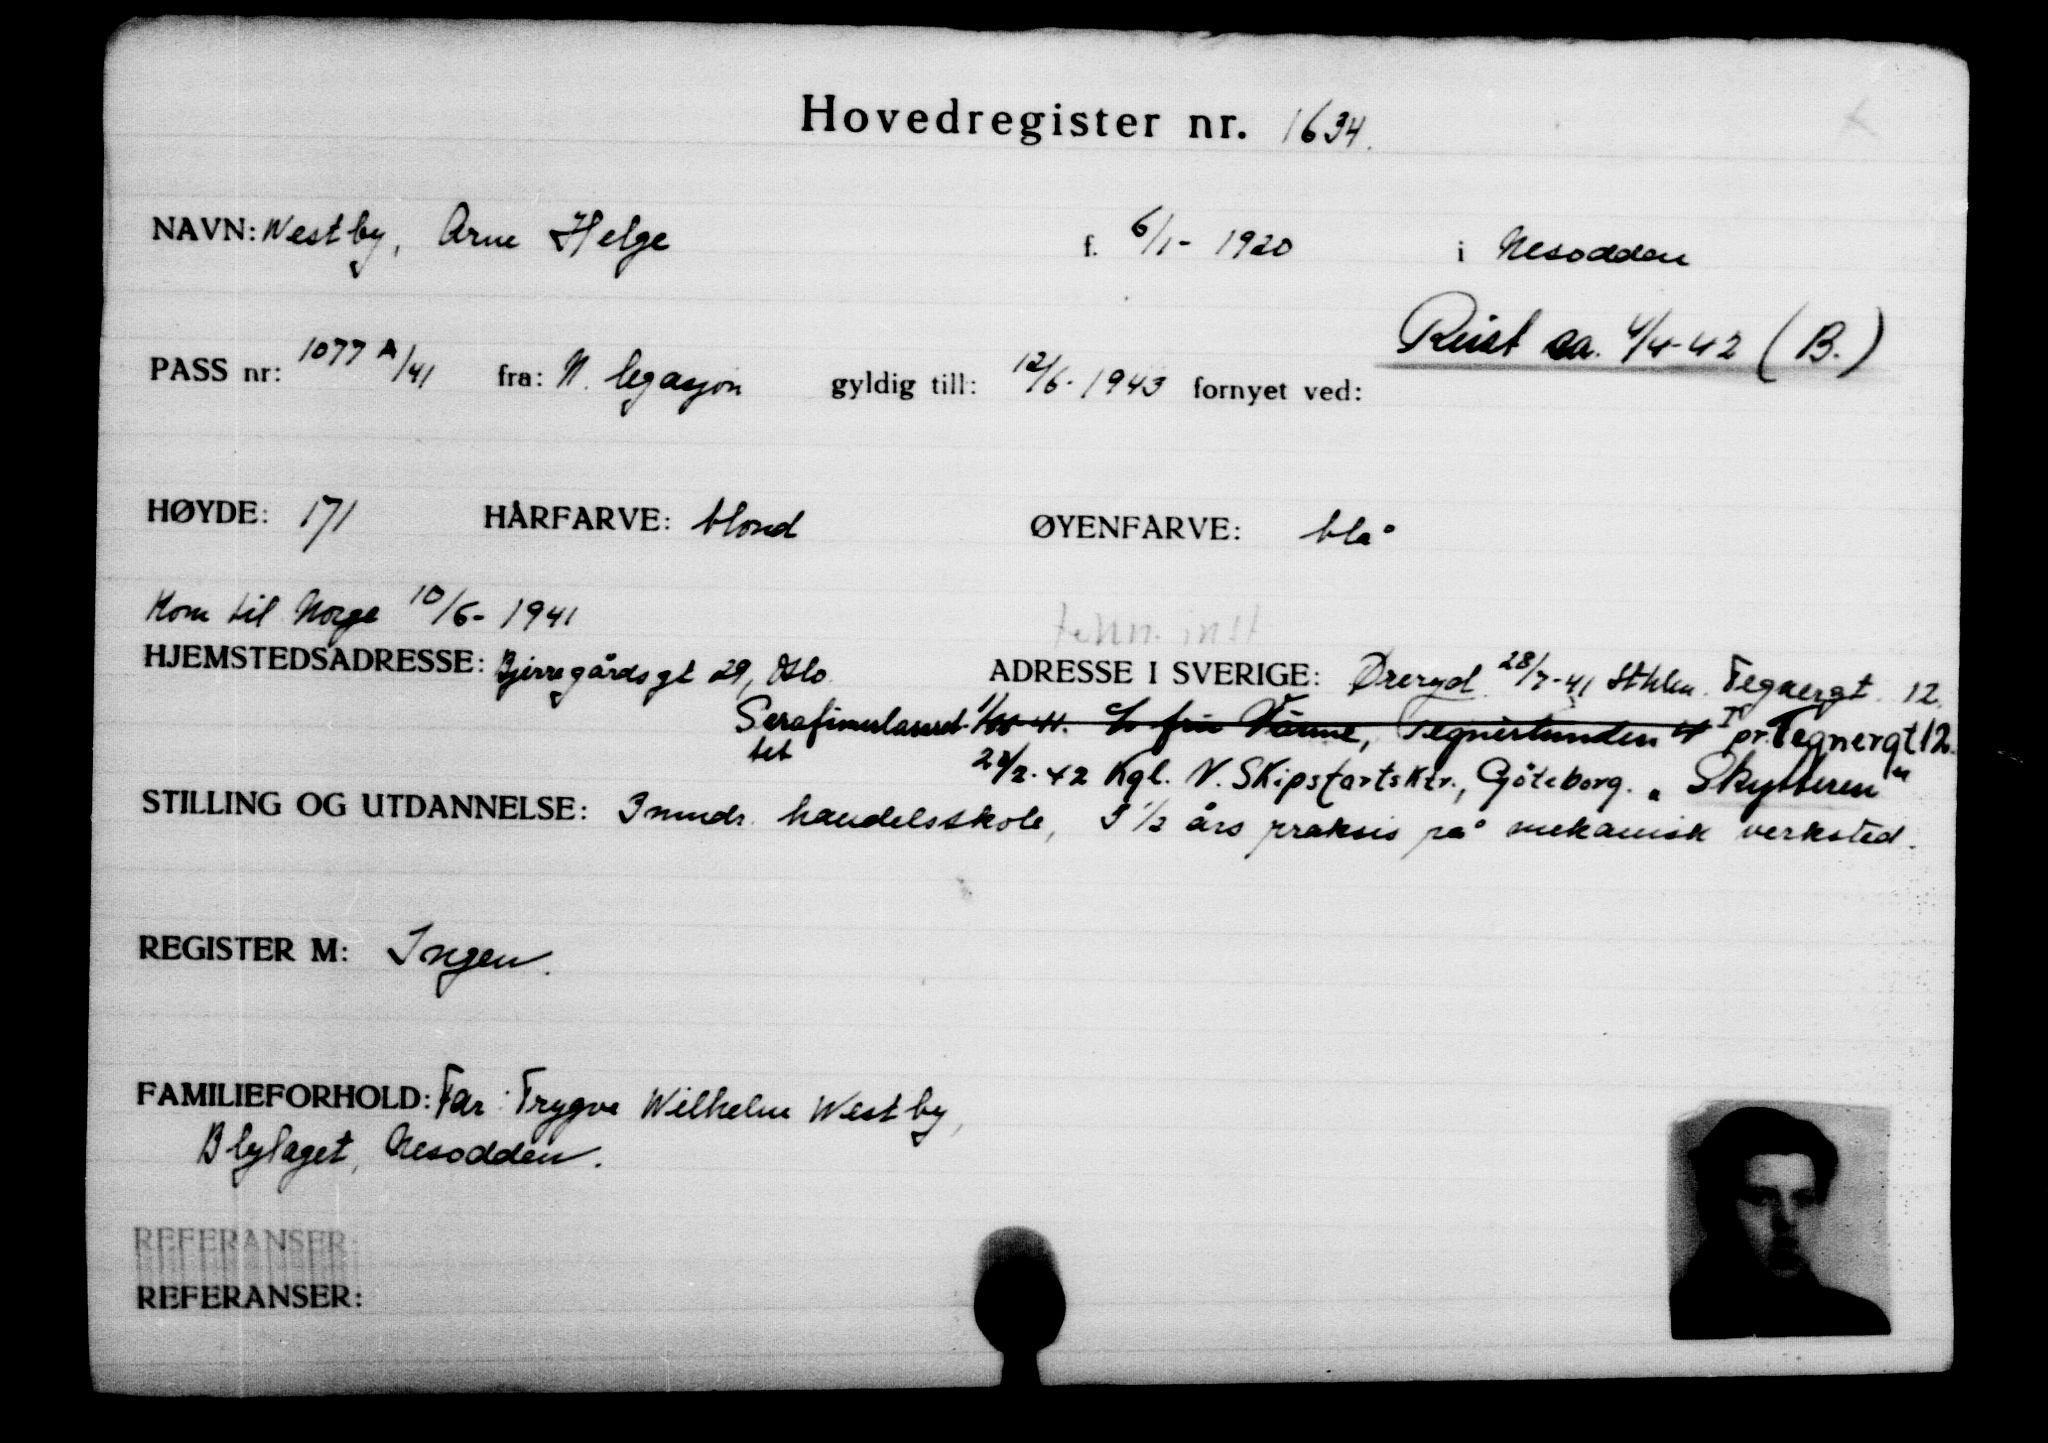 Hovedregister nr. 1634.
NAVN: Westby, Arne Helge f. 6/1- 1920 i Nesodden
Reist ca. 4/4-42 (B.)
PASS nr: 1077 A/41 fra: N. legasjon gyldig till: 12/6- 1943 fornyet ved:
HØYDE: 171 HÅRFARVE: blond ØYENFARVE: blå
Kom til Norge 10/6- 1941
HJEMSTEDSADRESSE: Bjerregårdsgt 29, Oslo. ADRESSE I SVERIGE: Øreryd. 28/7-41 Sthlm. Tegnergt. 12.
Serafimerlasaret- tet c/o fru Tegnerlunden pr. Tegnergt 12.
42 Kgl. N. Skipsfartsktr., Göteborg. „Skytteren"
STILLING OG UTDANNELSE: 3 mndr. handelsskole, 3 1/2 års praksis på mekanisk verksted.
REGISTER M: Ingen.
FAMILIEFORHOLD: Far: Trygve Wilhelm Westby,
Blylaget, Nesodden.
REFERANSER:
REFERANSER: